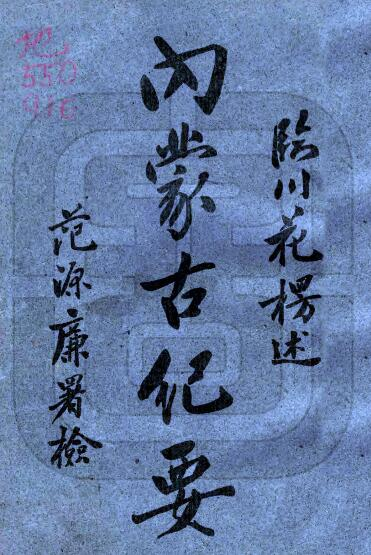 臨川花楞述
內蒙古紀要
范源廉署檢
地
550
416